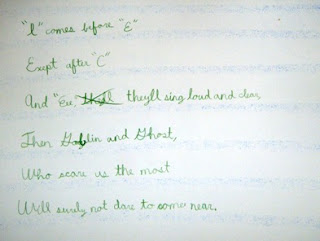 "I" comes before "E"
Exept after "C"
And "Eee," they'll sing loud and clear,
Then Goblin and Ghost,
Who scare us the most
Will surely not dare to come near.